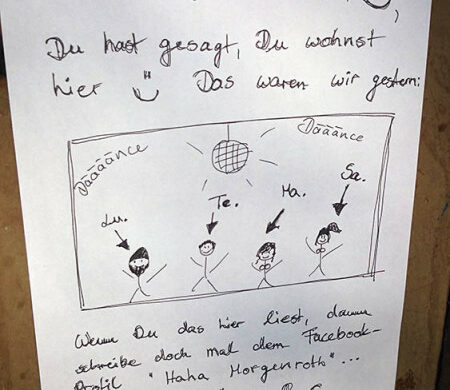 Du hast gesagt, Du wohnst
hier Das waren wir gestern:
Däääänce
Däääänce
Lu.
Te.
Ma.
Sa.
Wenn Du das hier liest, dann
schreibe doch mal dem Facebook-
Profil "Haha Morgenroth"...